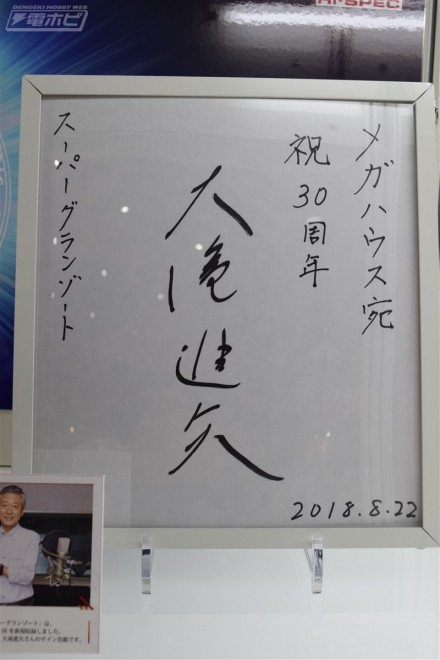 DENGEKI HOBBY WEB
電ホビ
HI-SPEC
メガハウス宛
祝30周年
大滝進矢
スーパーグランゾート
2018.8.22
ーグランゾート」は、
SEを新規収録しました。
大滝進矢さんのサイン色紙です。